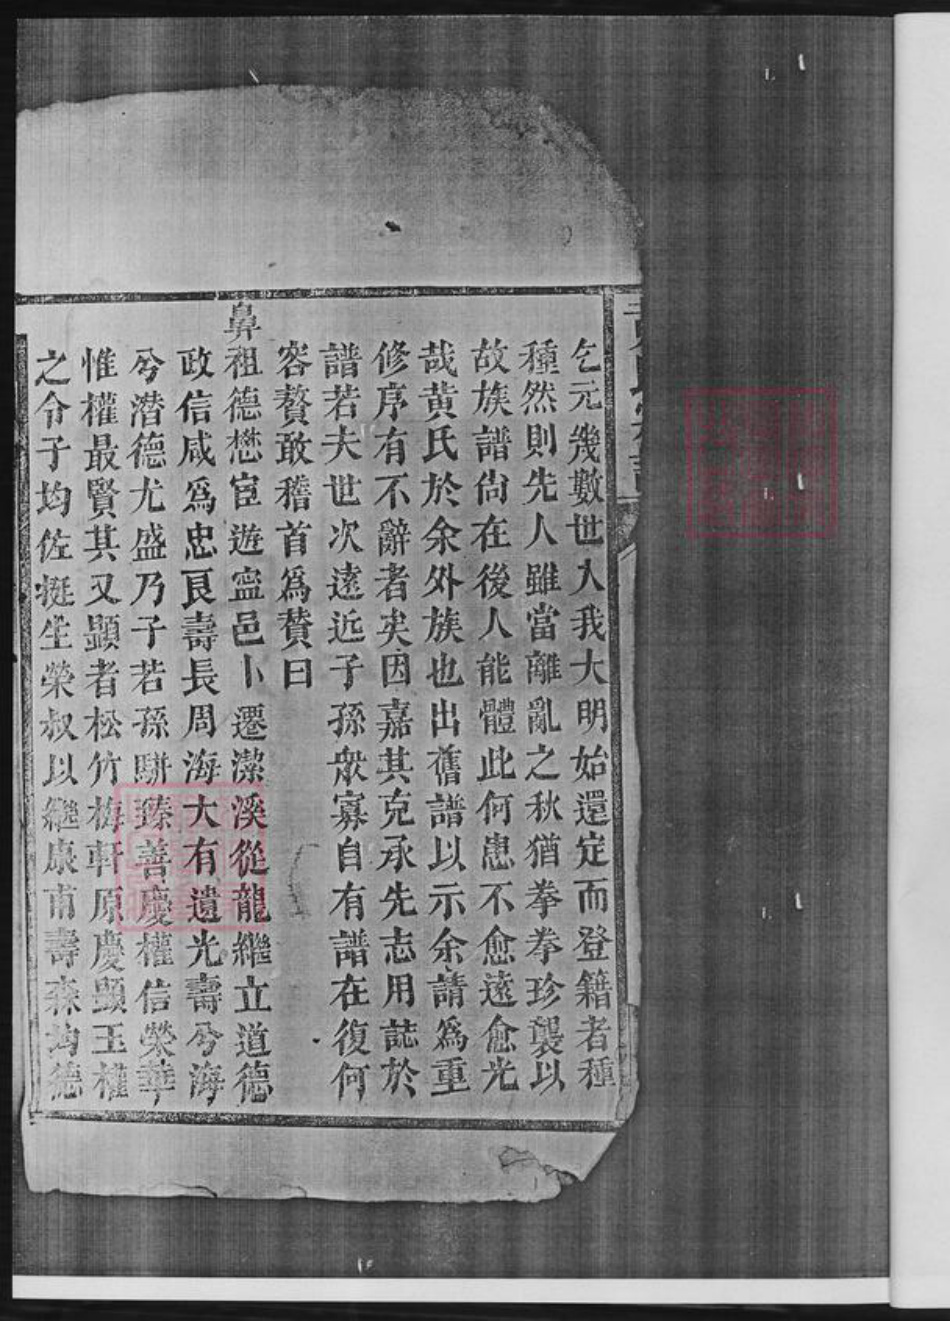 黃氏宗譜
乞元幾數世入我大明始還定而登籍者種
種然則先人雖當離亂之秋猶拳拳珍襲以
故族譜尙在後人能體此何患不愈遠愈光
哉黃氏於余外族也出舊譜以示余請爲重
修序有不辭者矣因嘉其克承先志用誌於
譜若夫世次遠近子孫衆寡自有譜在復何
容贅敢稽首爲贊曰
鼻祖德懋宦遊寍邑卜遷潔溪從龍繼立道德
政信咸爲忠艮壽長周海大有遺光壽兮海
兮潜德尤盛乃子若孫駢臻善慶權信榮華
惟權最賢其又顯者松竹梅軒原慶顯玉權
之令子均佐挺生榮叔以繼康甫壽森均德